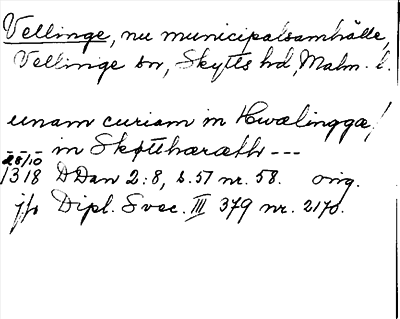 Vellinge, nu municipalsamhälle,
Vellinge sn, Skytts hd, Malm. l.
unam curiam in Hwælinggæ/
in Skøtthæræth ---
28/10
1318 DDan 2:8, s. 57 nr. 58. orig.
jfr Dipl. Svec. III 379 nr. 2170.